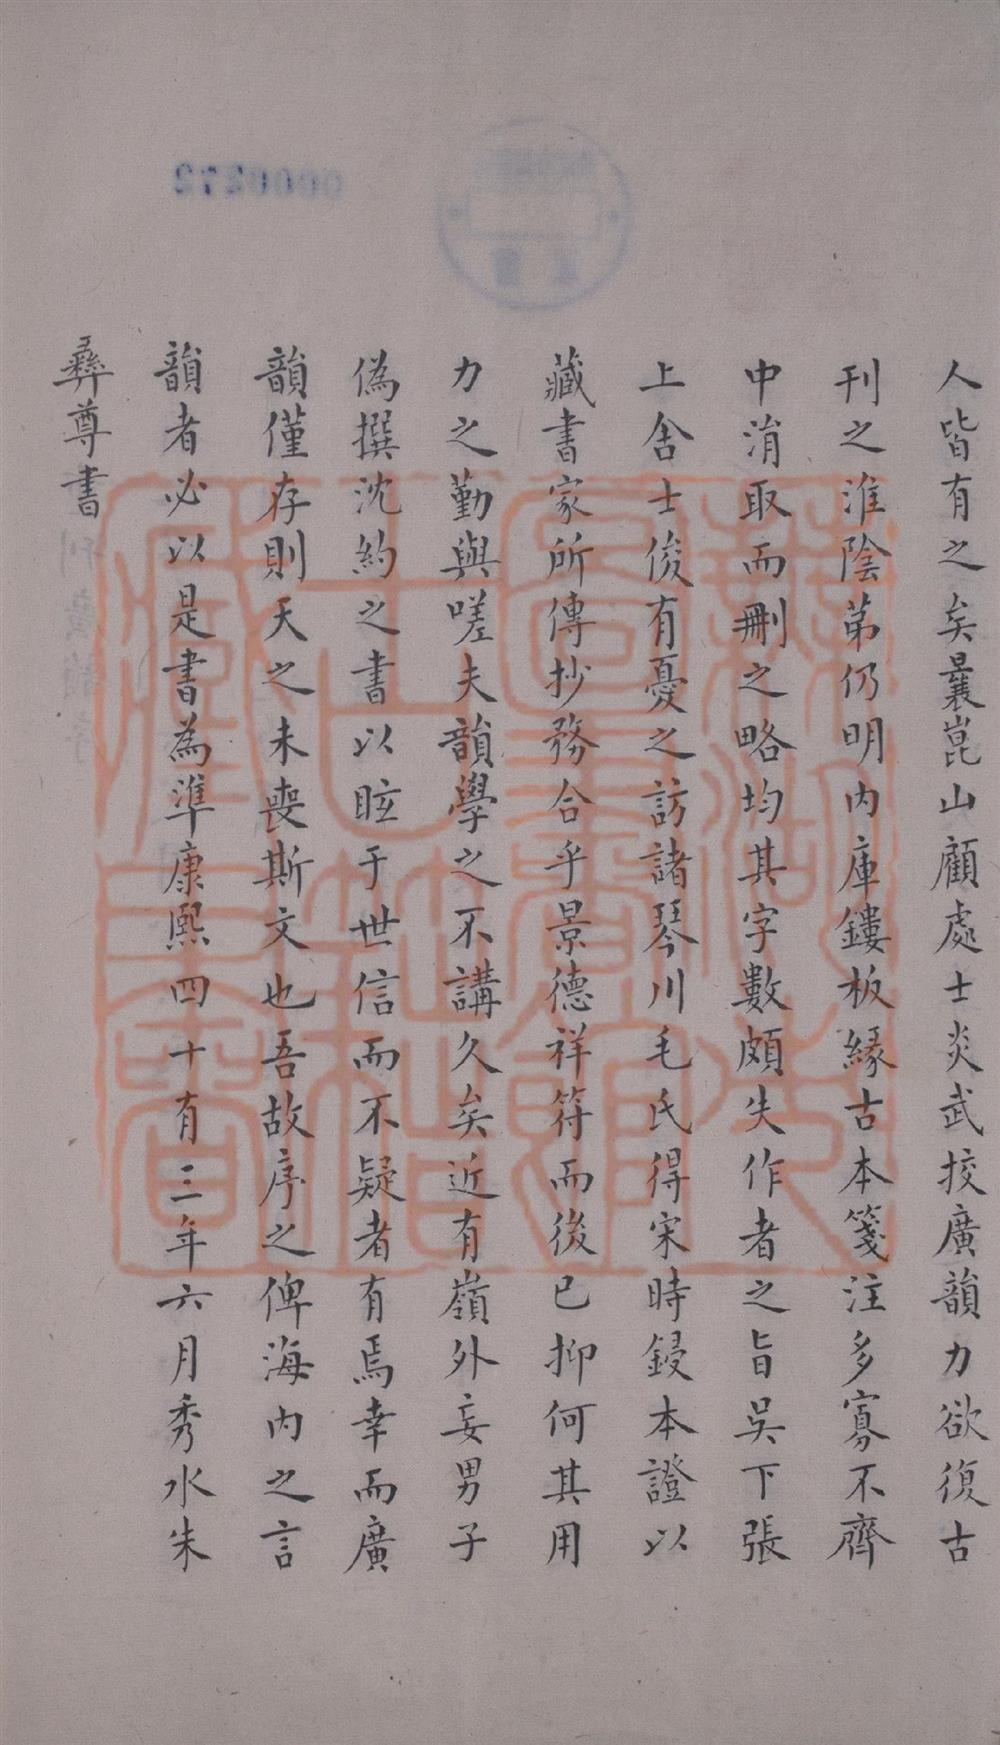 人皆有之矣曩崑山顧處士炎武挍廣韻力欲復古
刊之淮陰第仍明内庫鏤板緣古本箋注多寡不齊
中㳙取而刪之略均其字數頗失作者之旨吳下張
上舍士俊有憂之訪諸琴川毛氏得宋時鋟本證以
藏書家所傳抄務合乎景德祥符而後已抑何其用
力之勤與嗟夫韻學之不講久矣近有嶺外妄男子
偽撰沈約之書以眩于世信而不疑者有焉幸而廣
韻僅存則天之未喪斯文也吾故序之俾海内之言
韻者必以是書為準康熙四十有三年六月秀水朱
彝尊書
0000272